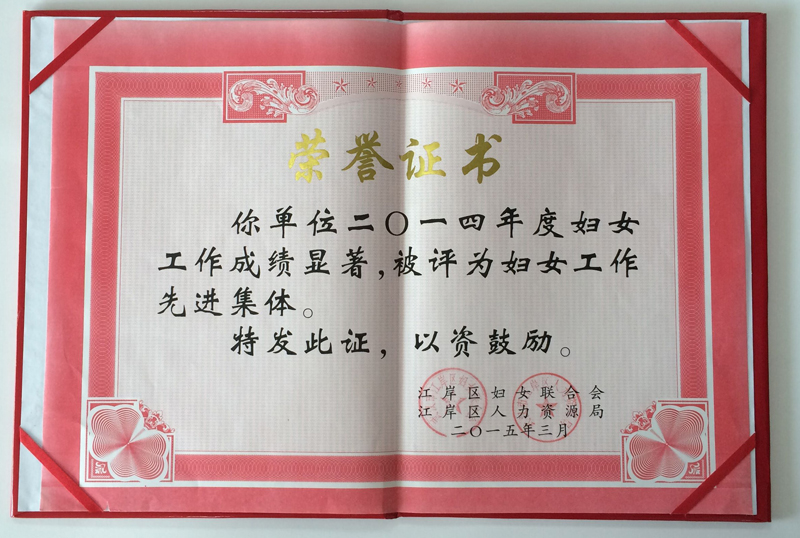 荣誉证书
你单位二〇一四年度妇女
工作成绩显著,被评为妇女工作
先进集体。
特发此证，以资鼓励。
江岸区妇女联合会
江岸区人力资源局
二〇一五年三月